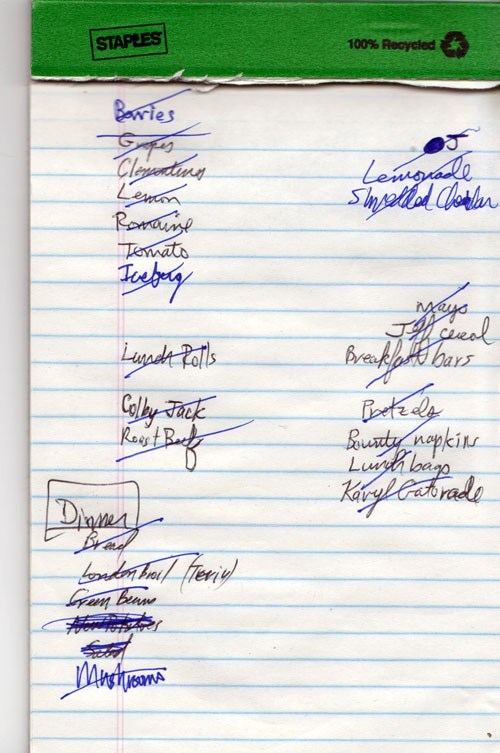 STAPLES
100% Recycled
Berries
Grapes
Clementines
Lemon
Romaine
Tomato
Iceberg
Lunch Rolls
Colby Jack
Roast Beef
Dinner
Bread
London broil (Teriy)
Green Beans
New Potatoes
Salad
Mushrooms
OJ
Lemonade
Shredded Cheddar
Mayo
Jeff cereal
Breakfast bars
Pretzels
Bounty napkins
Lunch bags
Karyl Gatorade